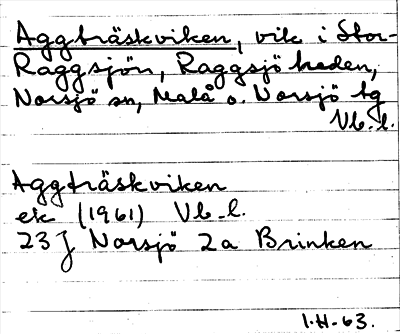 Aggträskviken, vik i Stor-
Raggsjön, Raggsjö heden,
Norsjö sn, Malå o. Norsjö tg
Vb. l.
Aggträskviken
ek (1961) Vb. l.
23 J Norsjö 2 a Brinken
I.H-63.